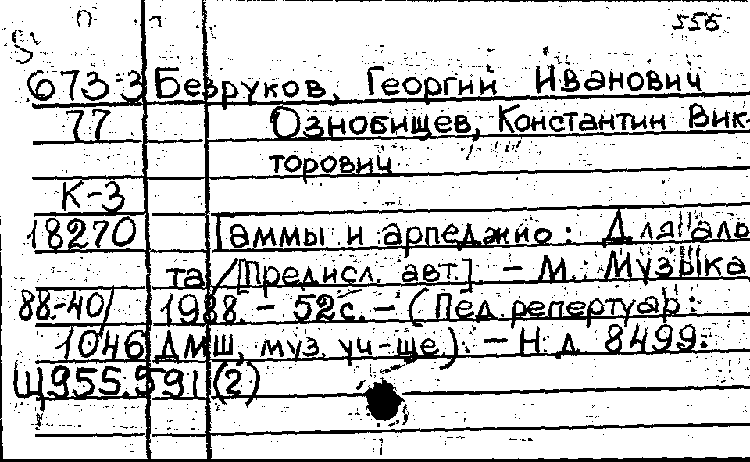 556
673-3 Безруков, Георгий Иванович
77 Ознобищев, Константин Вик-
торович
К-3
18270 Гаммы и арпеджио: Для аль
та /[Предисл. авт.]. - М.: Музыка
88-40/ 1988. - 52с. - (Пед. репертуар:
1046 ДМШ, муз. уч-ще). - Н. д. 8499.
Щ955.591(2)